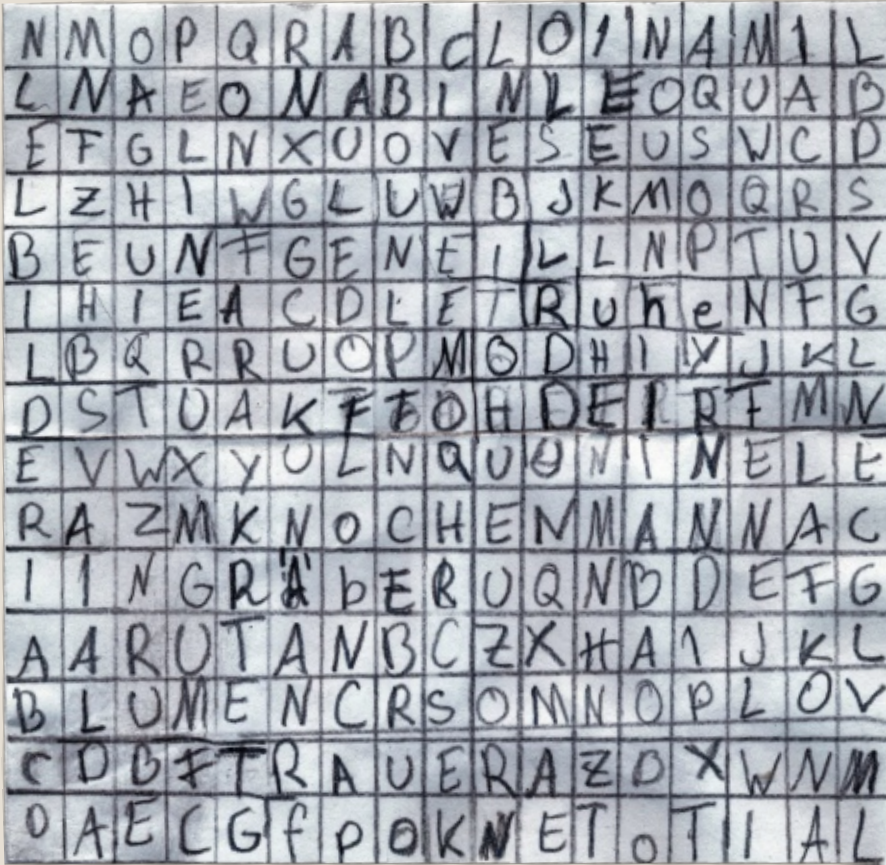 N M O P Q R A B C L O I N A M I L
L N A E O N A B I N L E O Q U A B
E F G L N X U O V E S E U S W C D
L Z H I W G L U W B J K M O Q R S
B E U N F G E N E I L L N P T U V
I H I E A C D L E T R u h e N F G
L B Q R R U O P M O D H I Y J K L
D S T U A K F F O H D E I R F M N
E V W X Y U L N Q U U N I N E L E
R A Z M K N O C H E N M A N N A C
I I N G R Ä b E R U Q N B D E F G
A A R U T A N B C Z X H A I J K L
B L U M E N C R S O M N O P L O V
C D B F T R A U E R A Z D X W N M
O A E C G f P O K N E T O T I A L